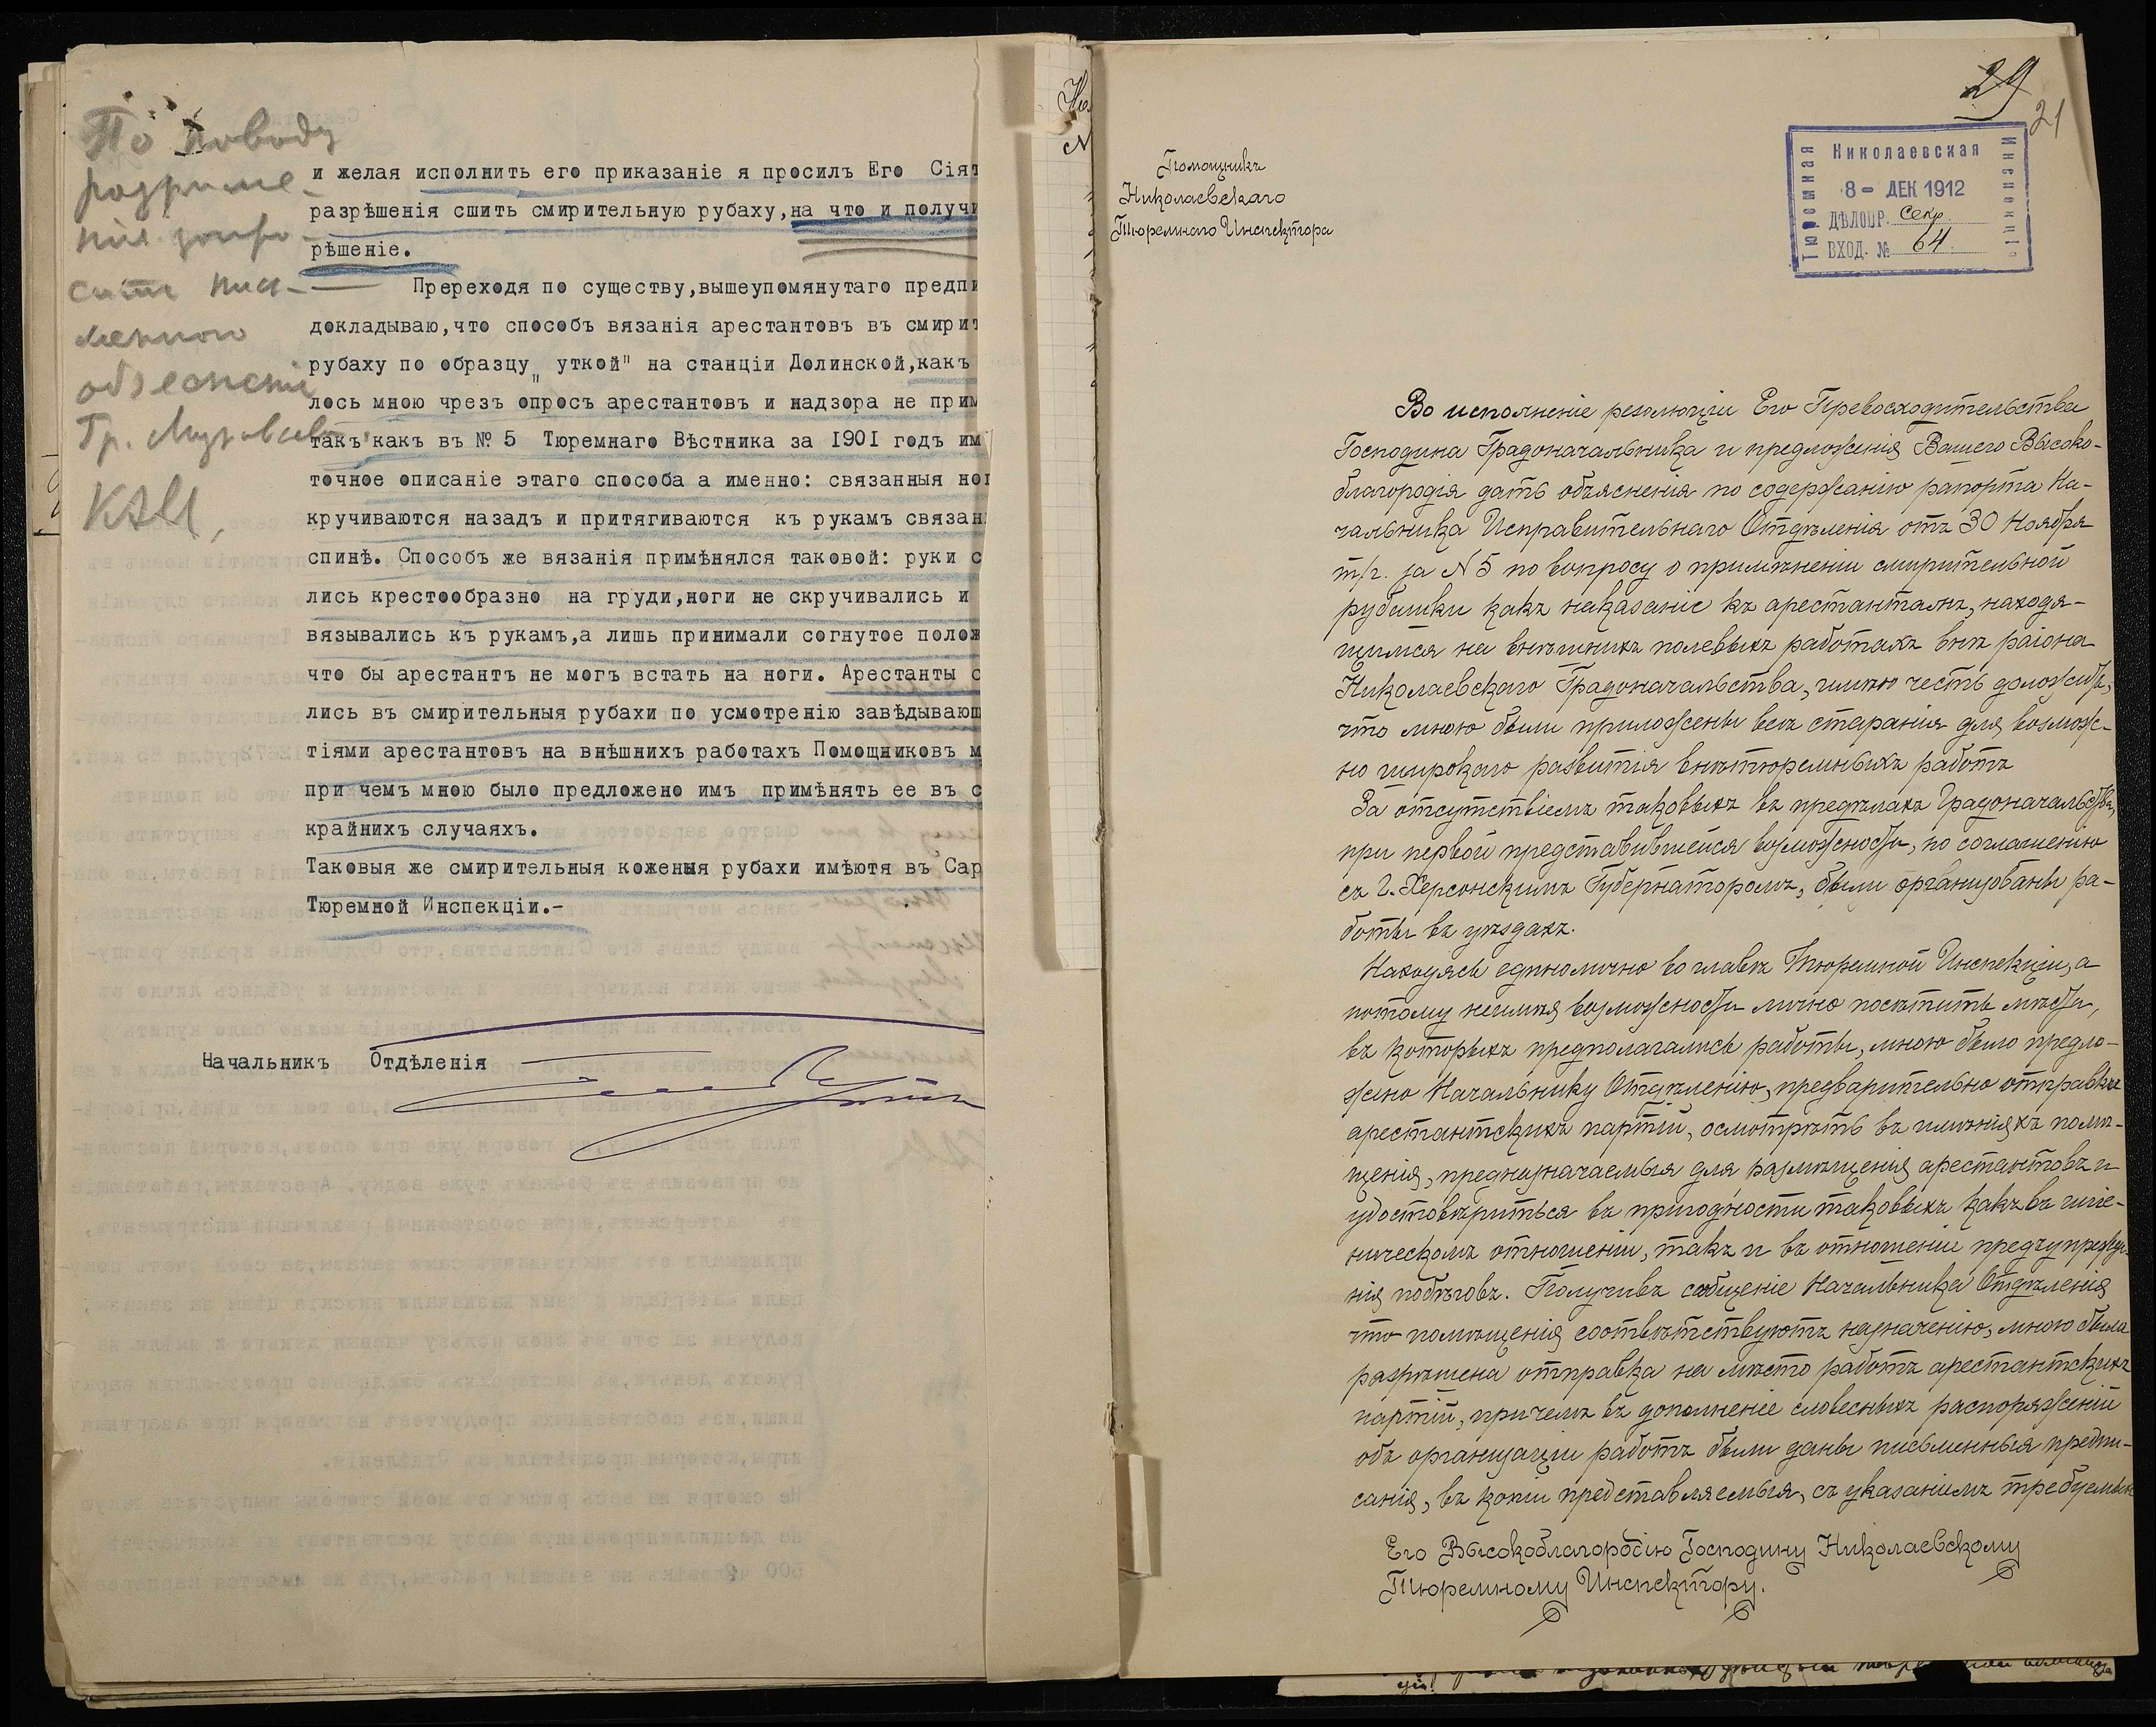 По поводу
разрѣше-
нія запро-
сить пись-
менно
объясненіе
Гр.
и желая исполнить его приказаніе я просилъ Его Сіят
разрѣшенія сшить смирительную рубаху,на что и получи
рѣшеніе.
Пререходя по существу,вышеупомянутаго предпи
докладываю,что способъ вязанія арестантовъ въ смирит
рубаху по образцу „ уткой" на станціи Долинской,какъ
лось мною чрезъ опросъ арестантовъ и надзора не прим
такъ какъ въ № 5 Тюремнаго Вѣстника за 1901 годъ им
точное описаніе этаго способа а именно: связанныя ног
кручиваются назадъ и притягиваются къ рукамъ связан
спинѣ. Способъ же вязанія примѣнялся таковой: руки с
лись крестообразно на груди,ноги не скручивались и
вязывались къ рукамъ,а лишь принимали согнутое полож
что бы арестантъ не могъ встать на ноги. Арестанты с
лись въ смирительныя рубахи по усмотренію завѣдывающ
тіями арестантовъ на внѣшнихъ работахъ Помощниковъ м
при чемъ мною было предложено имъ примѣнять ее въ с
крайнихъ случаяхъ.
Таковыя же смирительныя коженыя рубахи имѣютя въ Сар
Тюремной Инспекціи.-
Начальникъ Отдѣленія
29
21
Николаевская
Тюремная
Инспекція
8 - ДЕК 1912
ДѢЛОПР. секр.
ВХОД. № 64.
Помощникъ
Николаевскаго
Тюремнаго Инспектора
Во исполненіе резолюціи Его Превосходительства
Господина Градоначальника и предложенія Вашего Высоко-
благородія дать объясненія по содержанію рапорта На-
чальника Исправительнаго Отдѣленія отъ 30 Ноября
т/г. за N 5 по вопросу о примѣненіи смирительной
рубашки какъ наказаніе къ арестантамъ, находя-
щимся на внѣшнихъ полевыхъ работахъ внѣ раіона
Николаевскаго Градоначальства, имѣю честь доложить,
что мною были приложены всѣ старанія для возмож-
но широкаго развитія внѣтюремныхъ работъ
За отсутствіемъ таковыхъ въ предѣлахъ Градоначальства,
при первой представившейся возможности, по соглашенію
съ Г. Херсонскимъ Губернаторомъ, были организованы ра-
боты въ уѣздахъ.
Находясь единолично во главѣ Тюремной Инспекціи, а
потому неимѣя возможности лично посѣтить мѣста,
въ которыхъ предполагались работы, мною было предло-
жено Начальнику Отдѣленію, предварительно отправки
арестантскихъ партій, осмотрѣть въ имѣніяхъ помѣ-
щенія, предназначаемыя для размѣщенія арестантовъ и
удостовѣриться въ пригодности таковыхъ какъ въ гигіе-
ническомъ отношеніи, такъ и въ отношеніи предупрежде-
нія побѣговъ. Получивъ сообщеніе Начальника Отдѣленія
что помѣщенія соотвѣтствуютъ назначенію, мною была
разрѣшена отправка на мѣсто работъ арестантскихъ
партій, причемъ въ дополненіе словесныхъ распоряженій
объ организаціи работъ были даны письменныя предпи-
санія, въ копіи представляемыя, съ указаніемъ требуемыхъ
Его Высокоблагородію Господину Николаевскому
Тюремному Инспектору.